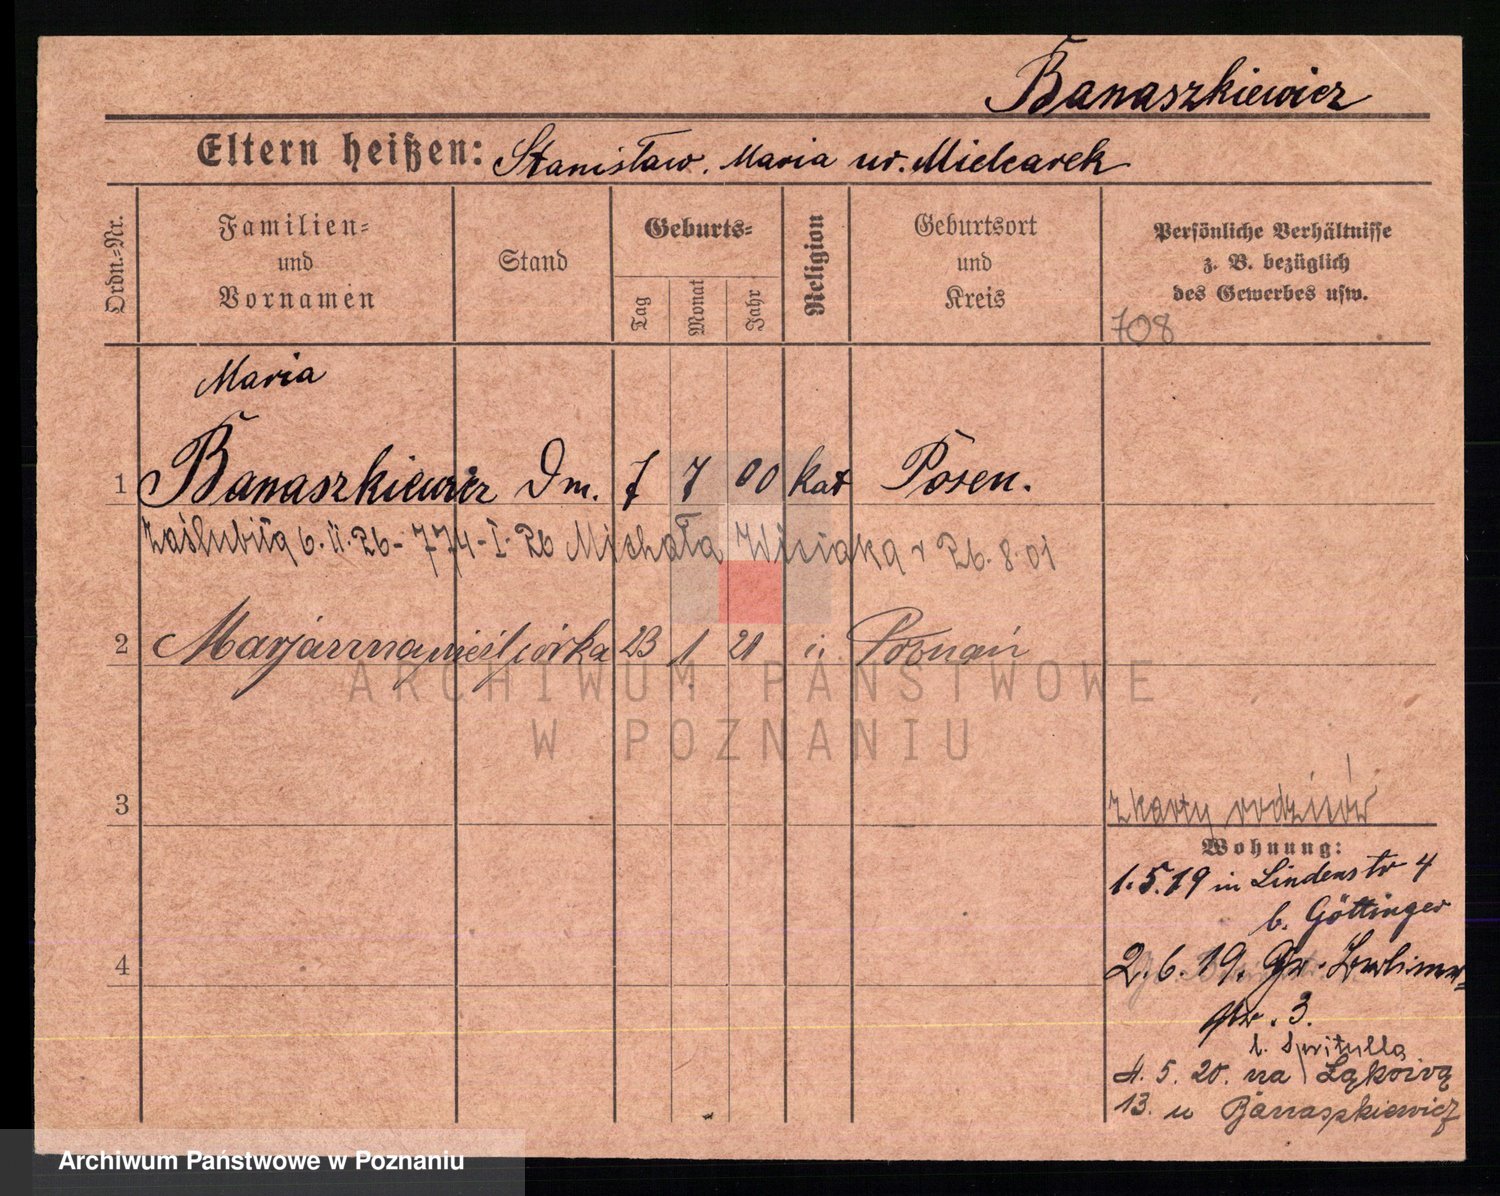 Banaszkiewicz
Eltern heißen: Stanisław. Maria ur. Mielcarek
Ordn.-Nr.
Familien- und Vornamen
Stand
Geburts-
Tag
Monat
Jahr
Religion
Geburtsort und Kreis
Persönliche Verhältnisse
z. B. bezüglich
des Gewerbes usw.
708
Maria
1 Banaszkiewicz Dm. 7 7 00 kat Posen.
zaślubiła 6.II.26 - 774-I-26 Michała Wisiaka r 26.8.01
2 Marjanna nieśl córka 23 1 21 ii Poznań
ARCHIWUM PAŃSTWOWE
W POZNANIU
3
z karty rodziców
Wohnung:
1.5.19 in Lindenstr 4
b. Göttinger
4
2.6.19. Gr. Berliner-
str. 3.
4. 5. 20. na Łąkową
13. u Banaszkiewicz
Archiwum Państwowe w Poznaniu